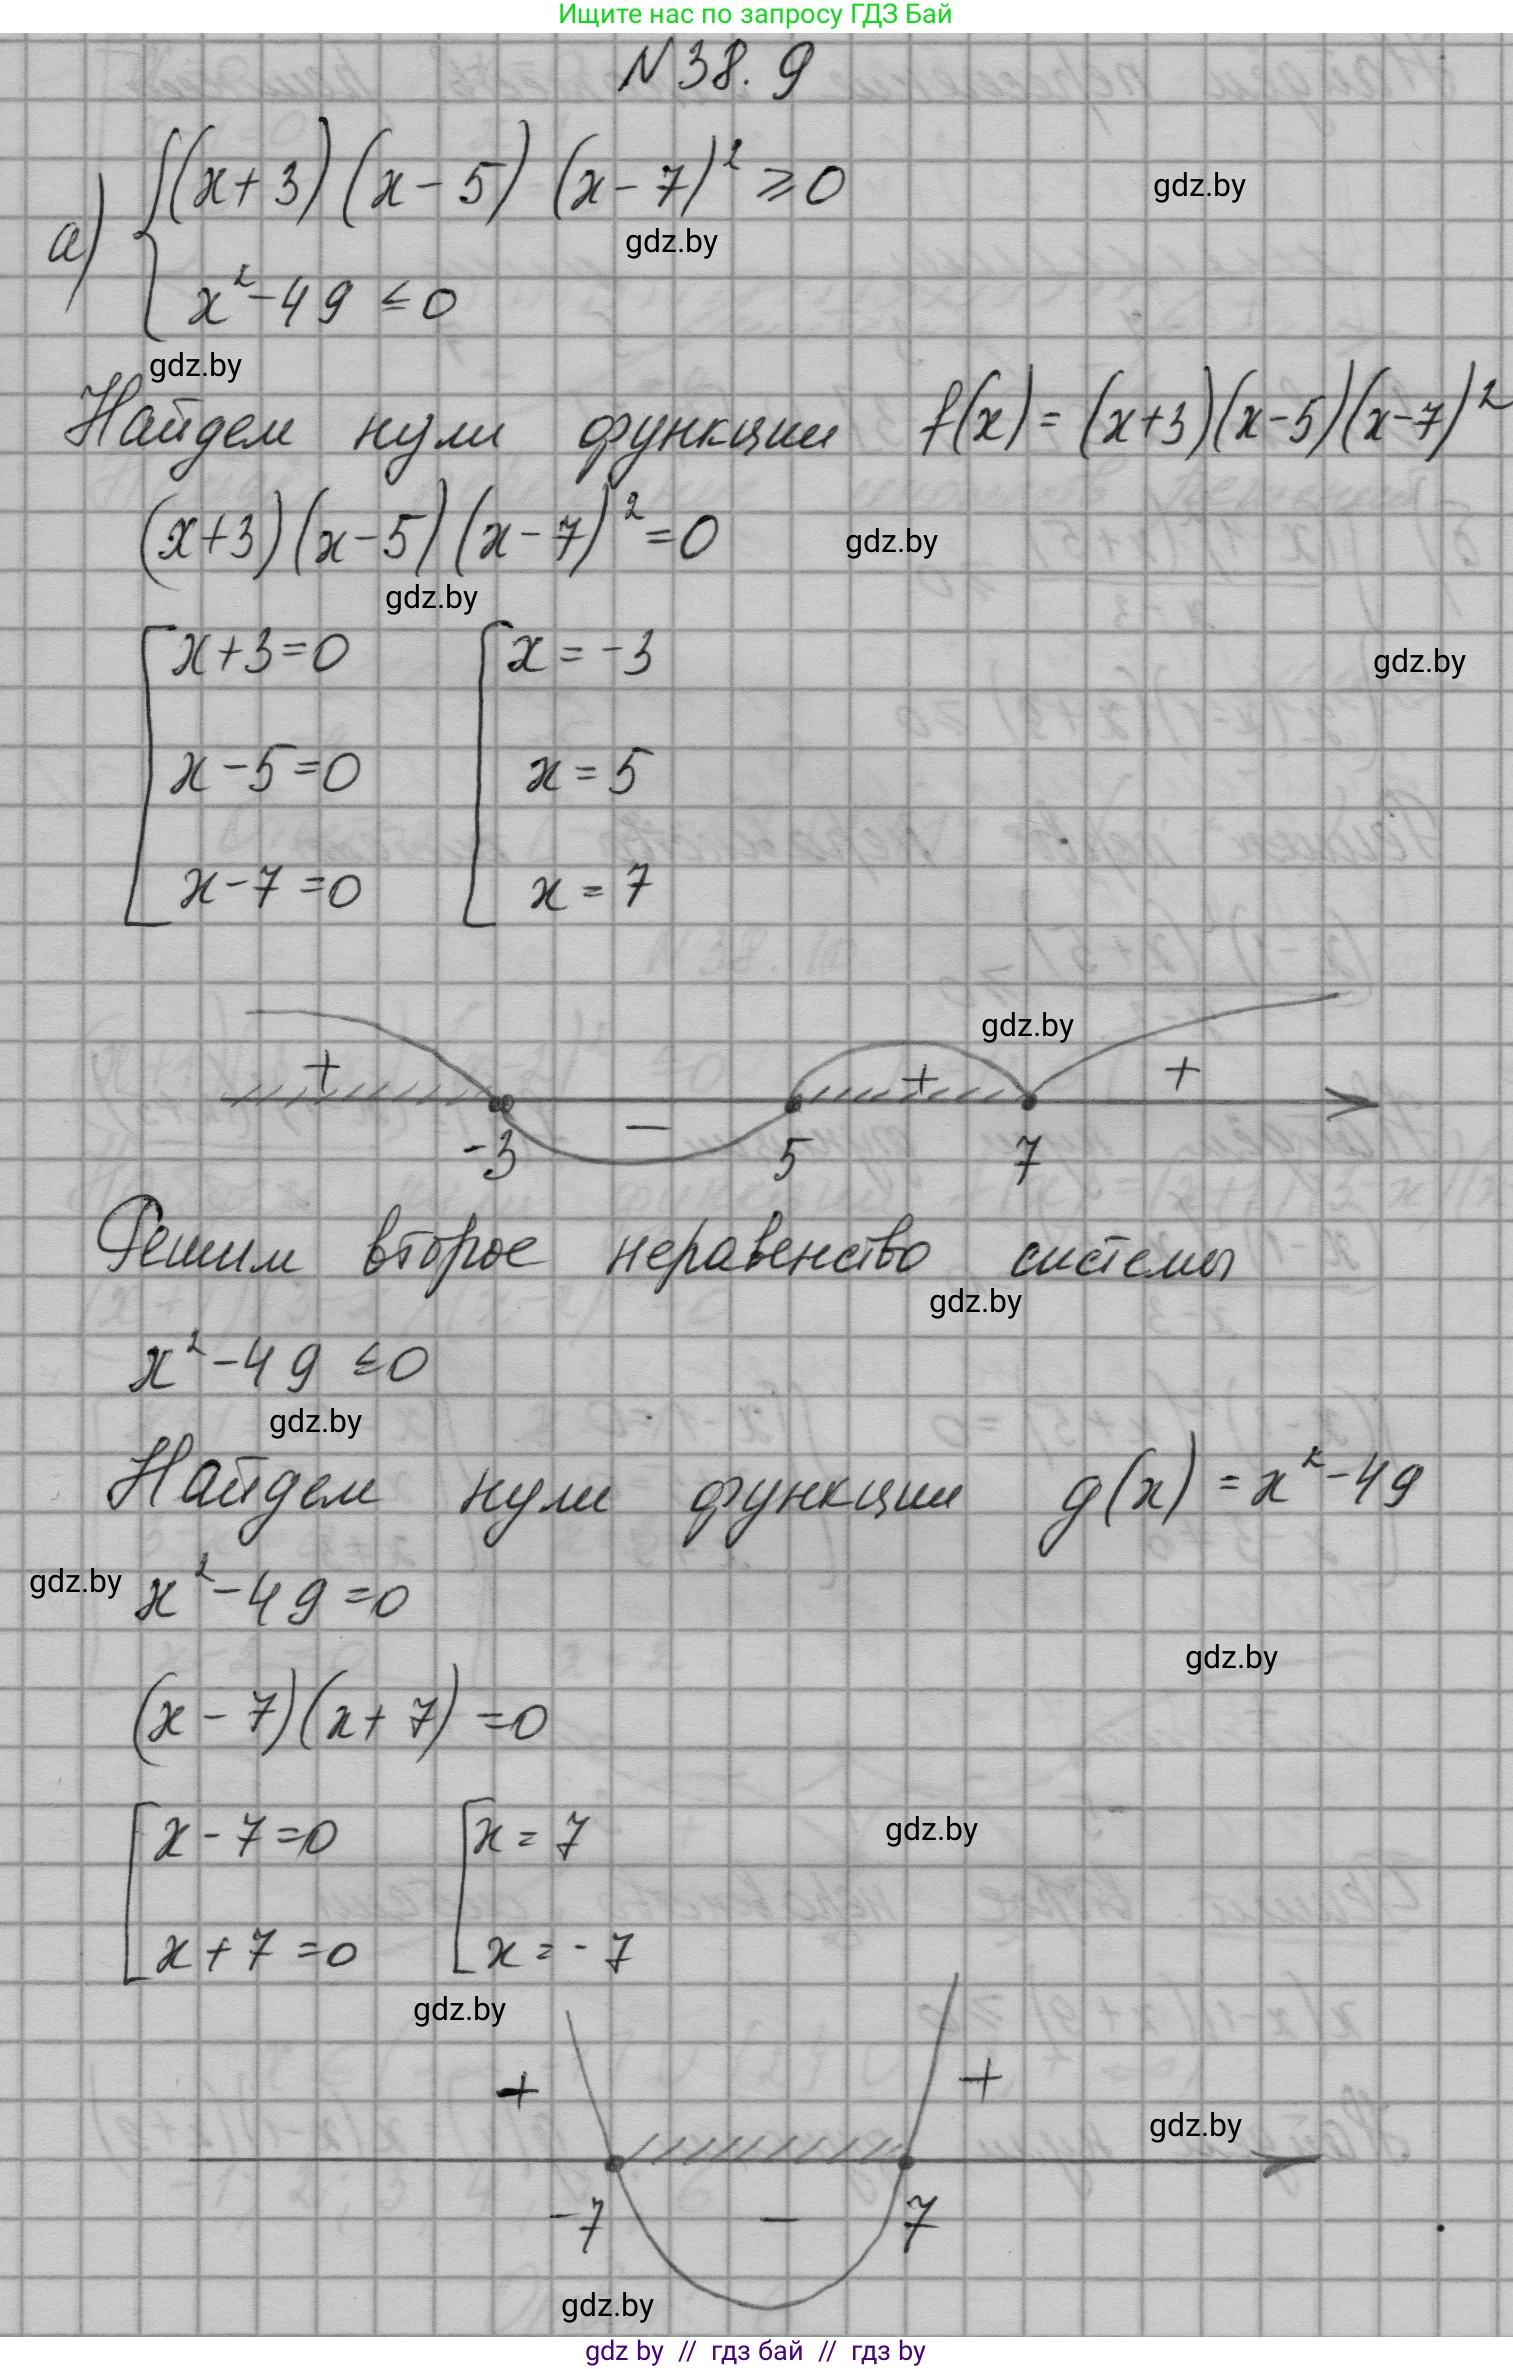 Ищите нас по запросу ГДЗ Бай
N 38. 9
а) { (x+3)(x-5)(x-7)² ≥ 0
gdz.by
gdz.by
x²-49 ≤ 0
gdz.by
Найдем нули функции f(x) = (x+3)(x-5)(x-7)²
(x+3)(x-5)(x-7)² = 0
gdz.by
gdz.by
[ x+3=0 [ x = -3
gdz.by
x-5=0 x = 5
x-7=0 x = 7
gdz.by
+ - + +
-3 5 7
Решим второе неравенство системы
gdz.by
x²-49 ≤ 0
gdz.by
Найдем нули функции g(x) = x²-49
gdz.by
x²-49=0
gdz.by
(x-7)(x+7)=0
[ x-7=0 [ x = 7
gdz.by
x+7=0 x = -7
gdz.by
+ +
gdz.by
-7 - 7
gdz.by
gdz by // гдз бай // гдз by